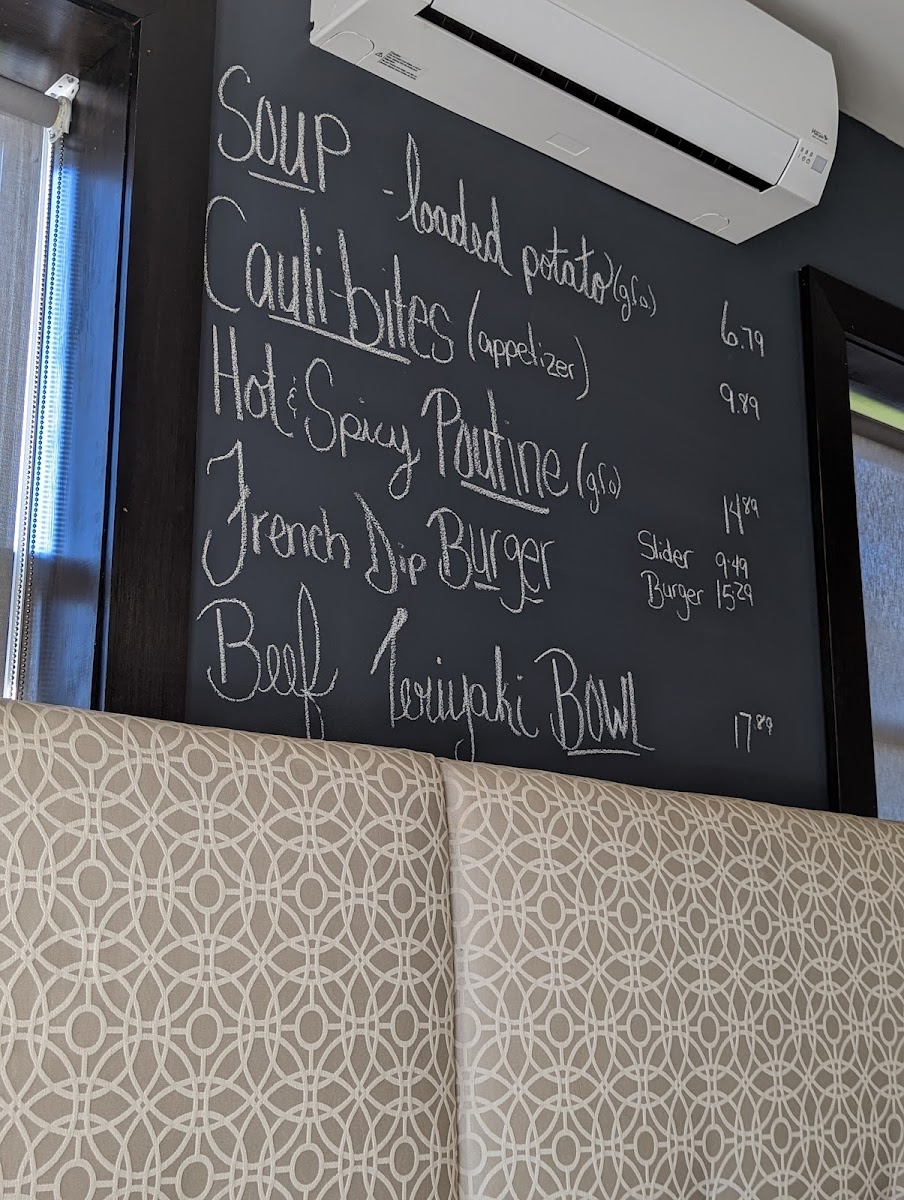 Soup
-loaded potato (gfo) 6.79
Cauli-bites (appetizer) 9.89
Hot & Spicy Poutine (gfo) 14.89
French Dip Burger Slider 9.49
Burger 15.29
Beef Teriyaki Bowl 17.89